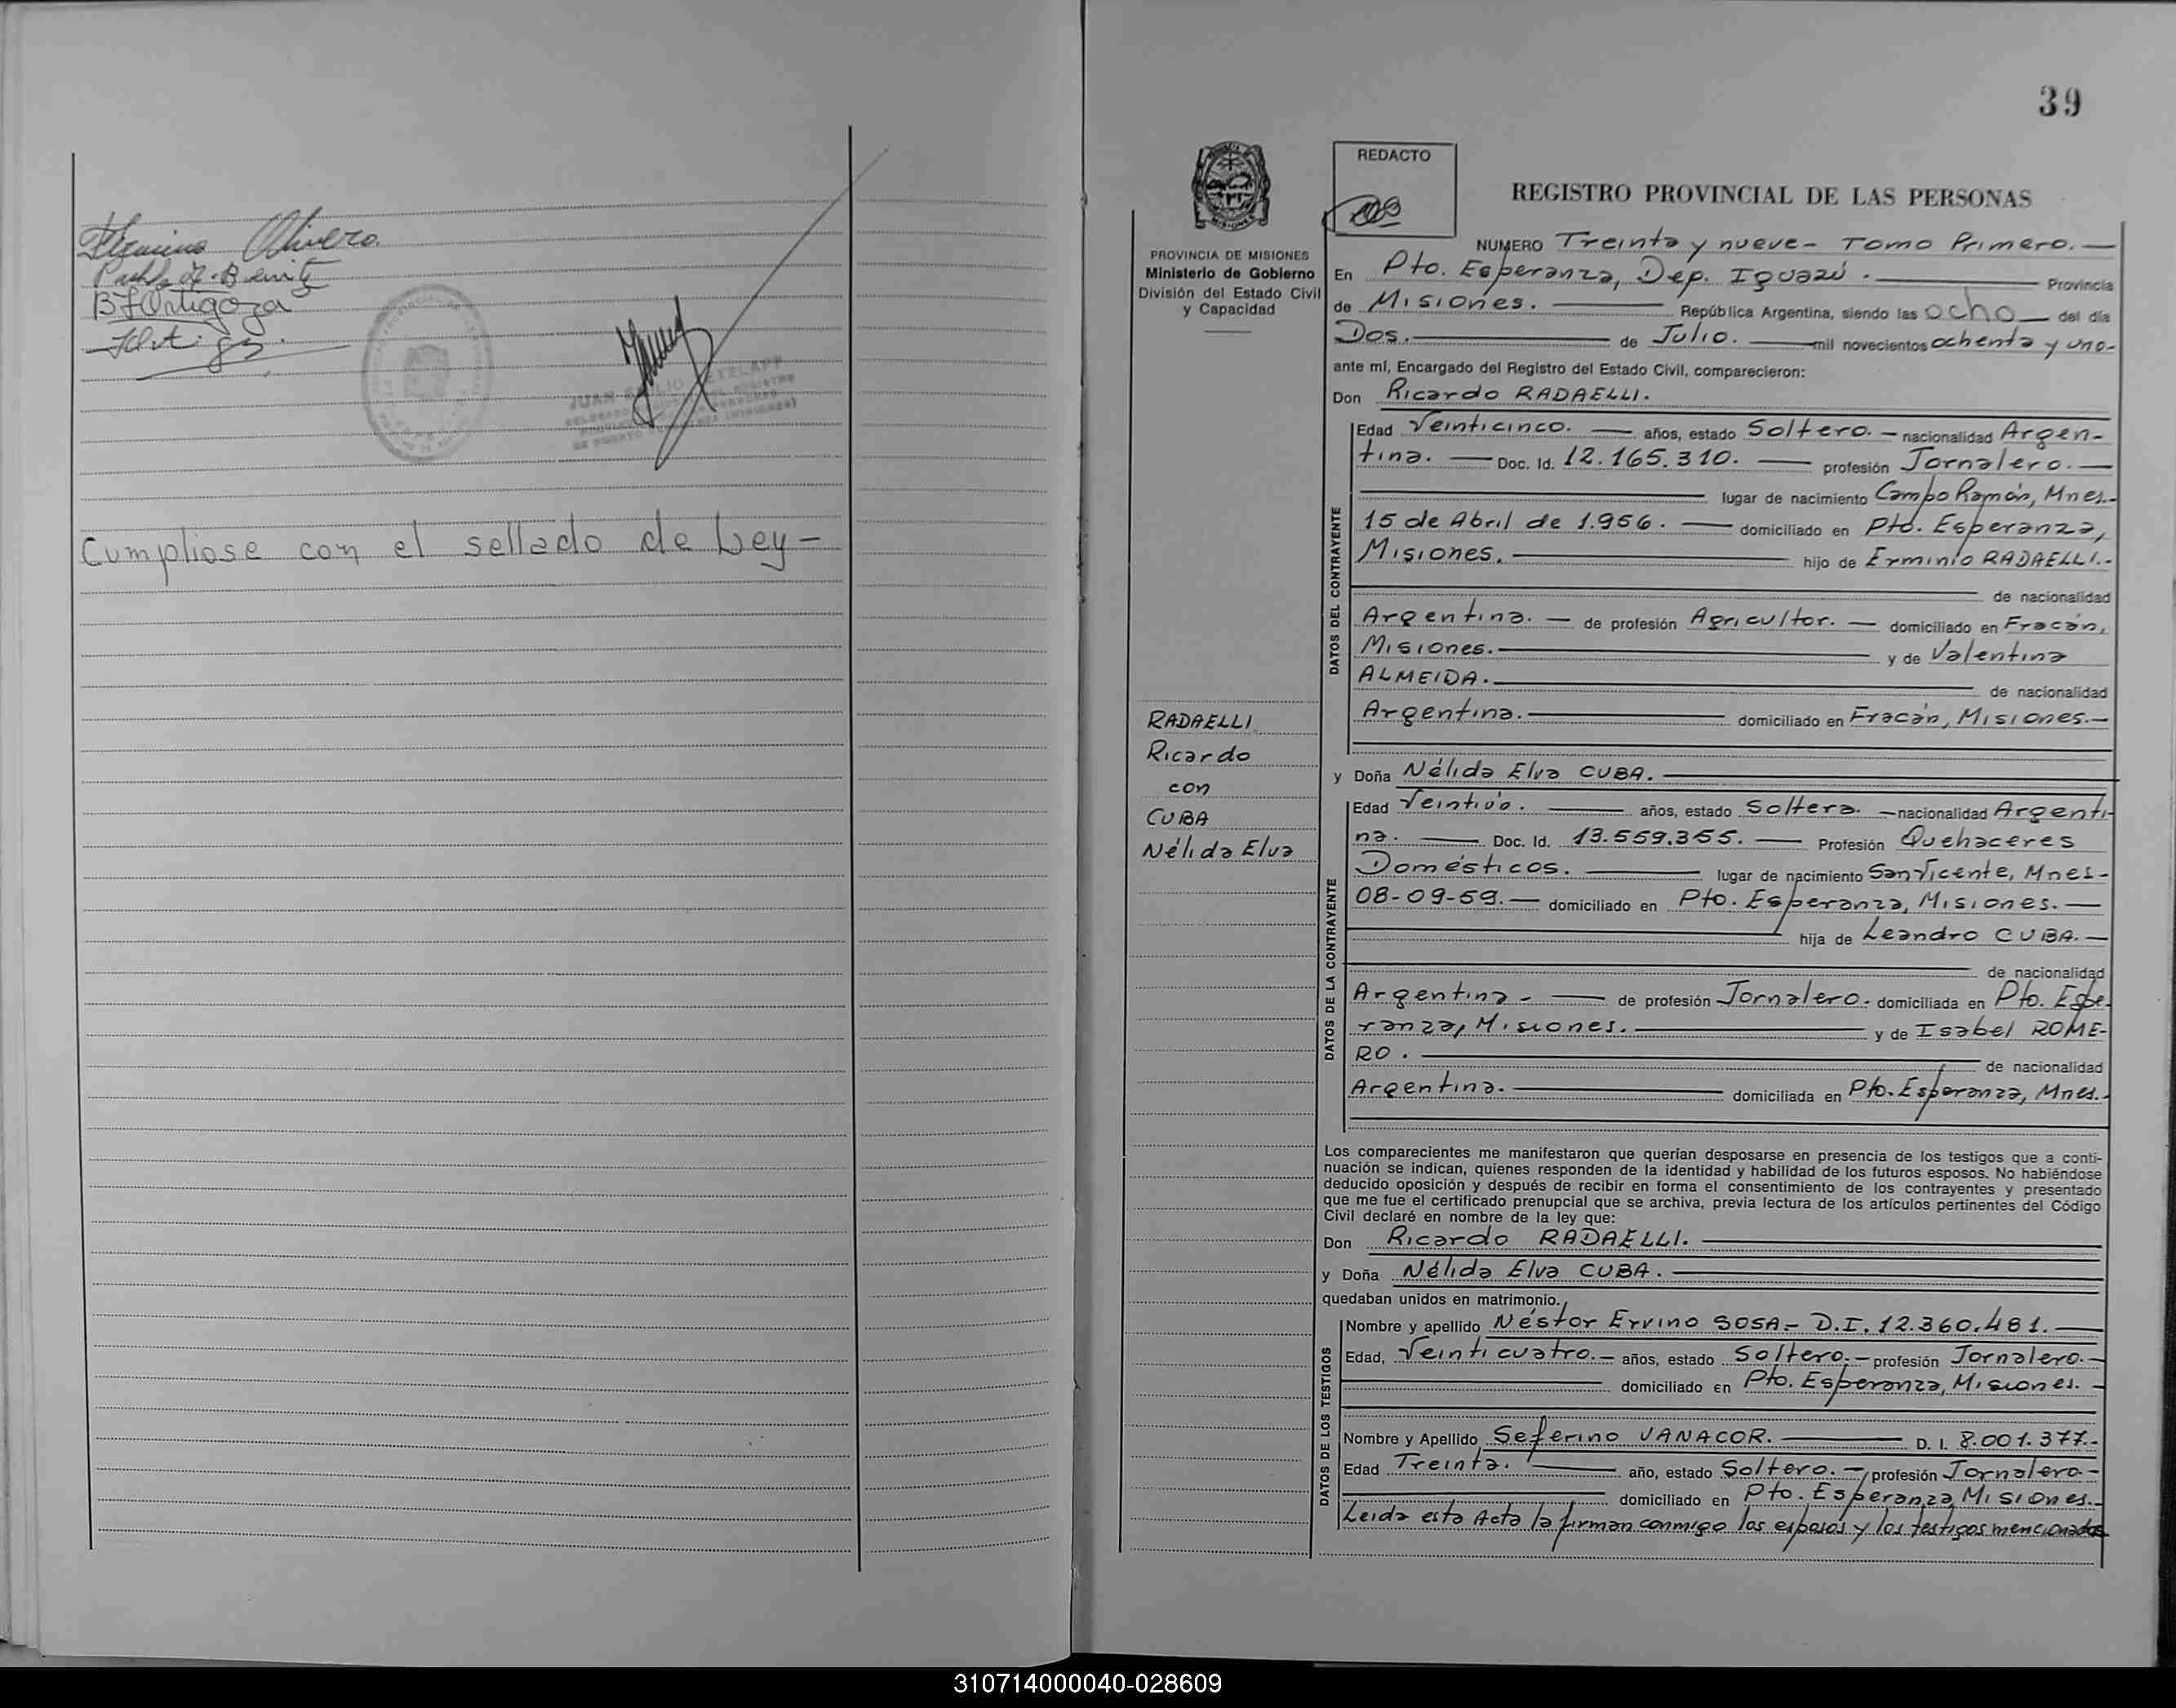 Olivero
B F Ortigoza
JUAN
Cumpliose con el sellado de Ley -
39
REDACTO
REGISTRO PROVINCIAL DE LAS PERSONAS
PROVINCIA DE MISIONES
Ministerio de Gobierno
División del Estado Civil
y Capacidad
NUMERO Treinta y nueve - Tomo Primero. —
En Pto. Esperanza, Dep. Iguazú. — Provincia
de Misiones. — República Argentina, siendo las ocho — del día
Dos. — de Julio. — mil novecientos ochenta y uno-
ante mí, Encargado del Registro del Estado Civil, comparecieron:
Don Ricardo RADAELLI.
DATOS DEL CONTRAYENTE
Edad Veinticinco. — años, estado Soltero. — nacionalidad Argen-
tina. — Doc. Id. 12.165.310. — profesión Jornalero. —
— lugar de nacimiento Campo Ramón, Mnes.-
15 de Abril de 1.956. — domiciliado en Pto. Esperanza,
Misiones. — hijo de Erminio RADAELLI.-
— de nacionalidad
Argentina. — de profesión Agricultor. — domiciliado en Fracán,
Misiones. — y de Valentina
ALMEIDA. — de nacionalidad
Argentina. — domiciliado en Fracán, Misiones. —
RADAELLI
Ricardo
con
CUBA
Nélida Elva
y Doña Nélida Elva CUBA. —
DATOS DE LA CONTRAYENTE
Edad Veintiuo. — años, estado Soltera. — nacionalidad Argenti-
na. — Doc. Id. 13.559.355. — Profesión Quehaceres
Domésticos. — lugar de nacimiento San Vicente, Mnes-
08-09-59. — domiciliado en Pto. Esperanza, Misiones. —
— hija de Leandro CUBA. —
— de nacionalidad
Argentina - — de profesión Jornalero. domiciliada en Pto. Espe-
ranza, Misiones. — y de Isabel ROME-
RO. — de nacionalidad
Argentina. — domiciliada en Pto. Esperanza, Mnes.-
Los comparecientes me manifestaron que querían desposarse en presencia de los testigos que a conti-
nuación se indican, quienes responden de la identidad y habilidad de los futuros esposos. No habiéndose
deducido oposición y después de recibir en forma el consentimiento de los contrayentes y presentado
que me fue el certificado prenupcial que se archiva, previa lectura de los artículos pertinentes del Código
Civil declaré en nombre de la ley que:
Don Ricardo RADAELLI. —
y Doña Nélida Elva CUBA. —
quedaban unidos en matrimonio.
DATOS DE LOS TESTIGOS
Nombre y apellido Néstor Ervino SOSA.- D.I. 12.360.481. —
Edad, Veinticuatro. — años, estado Soltero. — profesión Jornalero. —
— domiciliado en Pto. Esperanza, Misiones. -
Nombre y Apellido Seferino VANACOR. — D. I. 8.001.377.-
Edad Treinta. — año, estado Soltero. — profesión Jornalero. -
— domiciliado en Pto. Esperanza, Misiones.-
Leida esta Acta la firman conmigo los esposos y los testigos mencionados
310714000040-028609